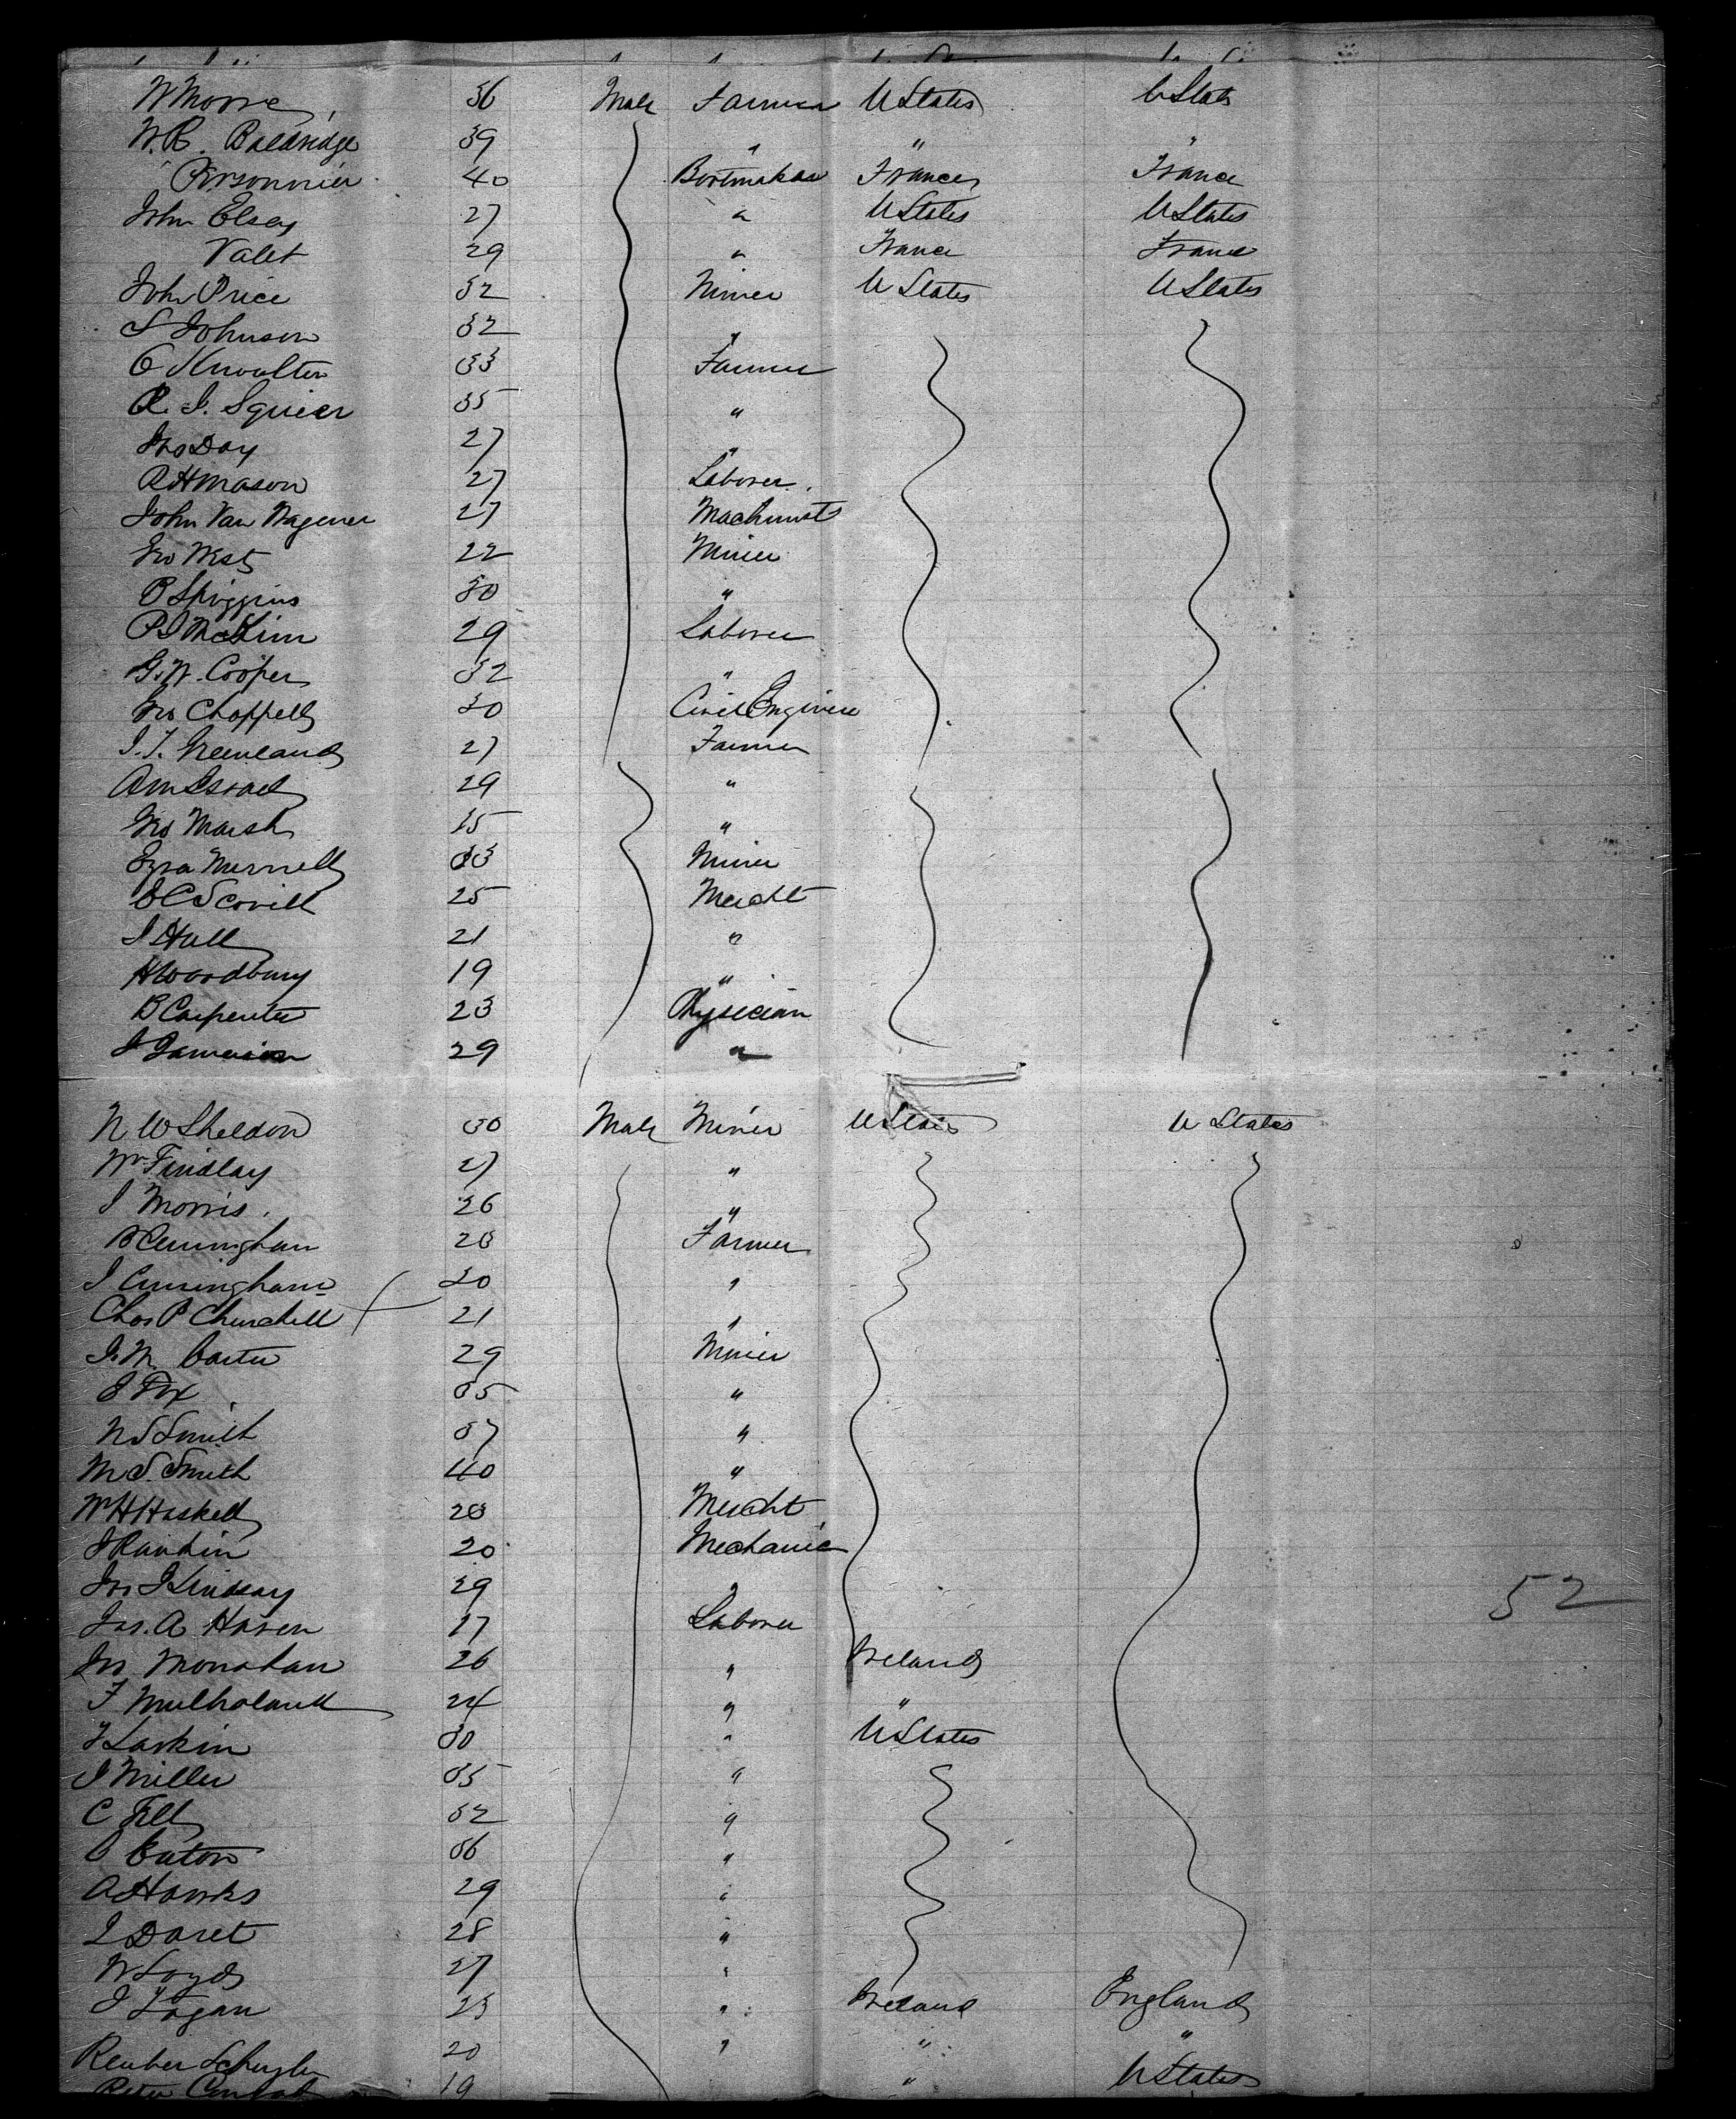 W Morse 36 Male Farmer U States U States
W. R. Baldridge 39 " "
Personnier 40 Bootmaker France France
John Elsey 27 " U States U States
Valet 29 " France France
John Price 32 Miner U States U States
S Johnson 32 "
O Knowlton 33 Farmer
R. J. Squier 35 "
Jno Day 27 "
R H Mason 27 Laborer
John Van Wagener 27 Machinist
Geo West 22 Miner
B Spiggins 30 "
29 Laborer
G. W. Cooper 32 "
Geo Chappell 30 Civil Engineer
J. T. Greenland 27 Farmer
Am Israel 29 "
Geo Marsh "
Ezra Merrell 33 Miner
Scovill 25 Mercht
J Hull 21 "
H Woodbury 19 "
B Carpenter 23 Physician
J Jameison 29 "
N W Sheldon 30 Male Miner U States U States
Wm Findlay 27 "
J Morris. 26 "
B Cunningham 28 Farmer
J Cuningham 20 "
Chas P Churchill 21 "
J. M. Carter 29 Miner
J Fox 35 "
N S Smith 37 "
M S. Smith 40 "
W H Haskell 28 Mercht
J Rankin 20 Mechanic
Jno J Lindsay 29 "
Jas. A Haven 27 Laborer 52
Jno Monahan 26 " Ireland
F Mulholand 24 " "
T Larkin 30 " U States
J Miller 35 "
C Felt 32 "
O Eaton 36 "
A Hawks 29 "
J Daret 28 "
W Loyd 27 "
J Fagan 23 " Ireland England
Reuben Schuyler 20 " " "
Peter 19 " U States